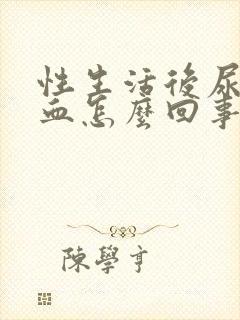 性生活後尿
血怎麼回事
陳學亨